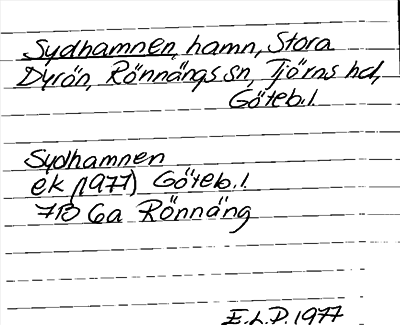 Sydhamnen, hamn, Stora
Dyrön, Rönnängs sn, Tjörns hd,
Göteb. l.
Sydhamnen
ek (1977) Göteb. l.
7B 6a Rönnäng
E.L.P. 1977